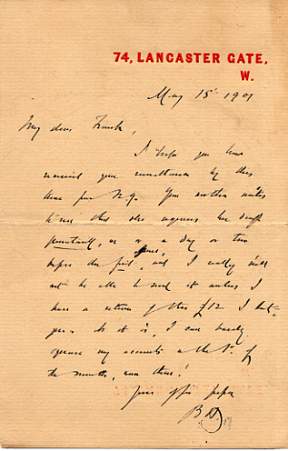 74, LANCASTER GATE,
W.
May 15 1901
My dear Frank,
I hope you have
received your remittance by this
time from N.Y. Your mother writes
me that she requires her
punctually, on or a day or two
before the first, and I really will
not be able to send it unless I
have a return of the £12 I
you. As it is, I can barely
my accounts the 1st of
the month, even then!
Yours
B